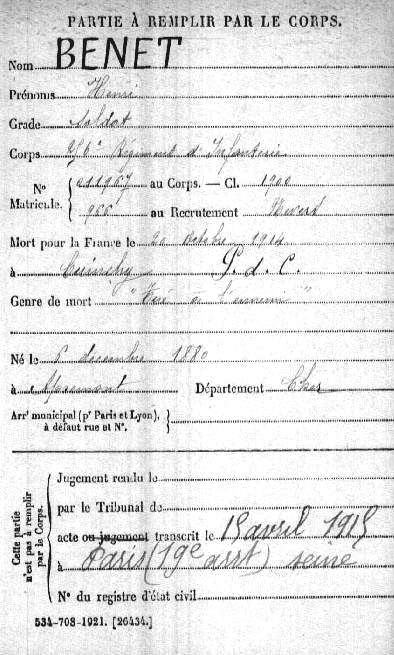 PARTIE À REMPLIR PAR LE CORPS.
Nom BENET
Prénoms Henri
Grade Soldat
Corps 256e Régiment d'Infanterie
N° Matricule. { 011967 au Corps. — Cl. 1900
966 au Recrutement
Mort pour la France le 20 octobre 1914
à Cuinchy P. d. C.
Genre de mort "Tué à l'ennemi"
Né le 6 décembre 1880
à Apremont Département Cher
Arrt municipal (pr Paris et Lyon), à défaut rue et N°. }
Cette partie n'est pas à remplir par le Corps. {
Jugement rendu le
par le Tribunal de
acte ou jugement transcrit le 15 avril 1915
à Paris (19e arrt) Seine
N° du registre d'état civil
534-708-1921. [26434.]